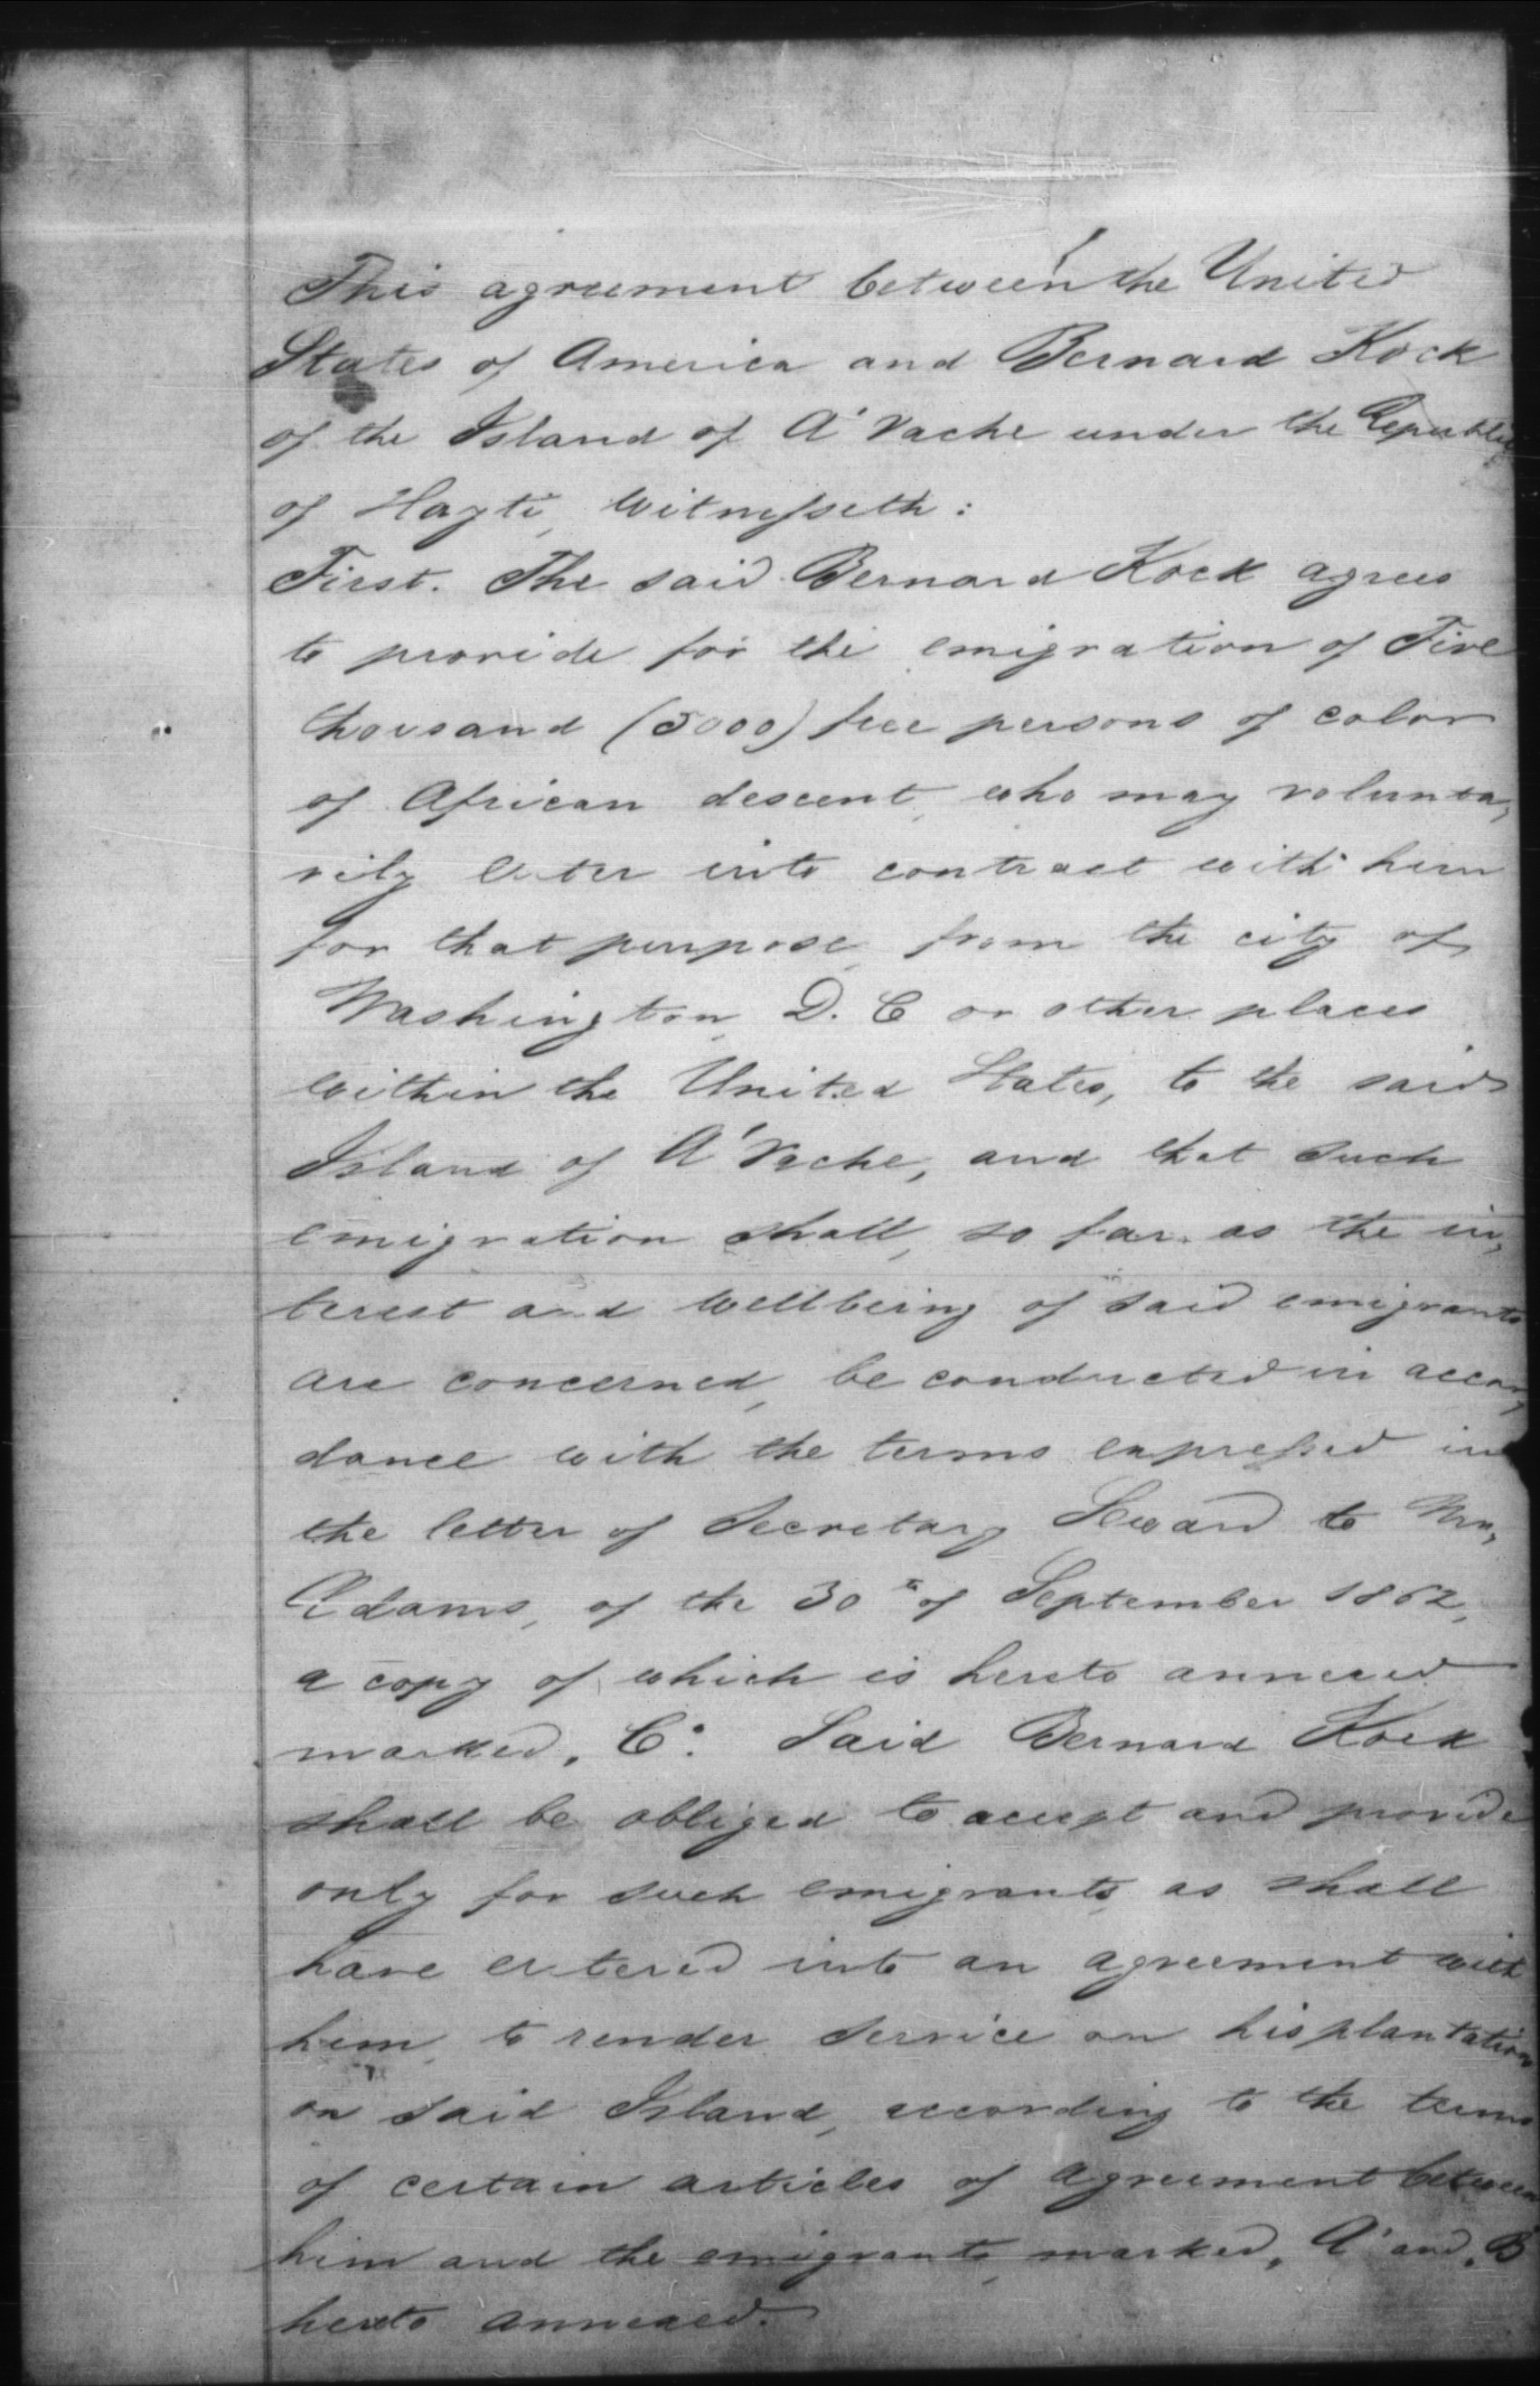 This agreement between the United
States of America and Bernard Kock
of the Island of A'Vache under the Republic
of Hayti, witnesseth:
First. The said Bernard Kock agrees
to provide for the emigration of Five
thousand (5000) free persons of color
of African descent, who may volunta,
rily enter into contract with him
for that purpose, from the city of
Washington, D. C or other places
within the United States, to the said
Island of A'Vache, and that such
emigration shall, so far as the in,
terest and wellbeing of said emigrants
are concerned, be conducted in accor,
dance with the terms expressed in
the letter of Secretary Seward to Mr,
Adams, of the 30th of September 1862,
a copy of which is hereto annexed
marked „C". Said Bernard Kock
shall be obliged to accept and provide
only for such emigrants, as shall
have entered into an agreement with
him, to render service on his plantation
on said Island, according to the terms
of certain articles of agreement between
him and the emigrants, marked „A" and „B
hereto annexed.